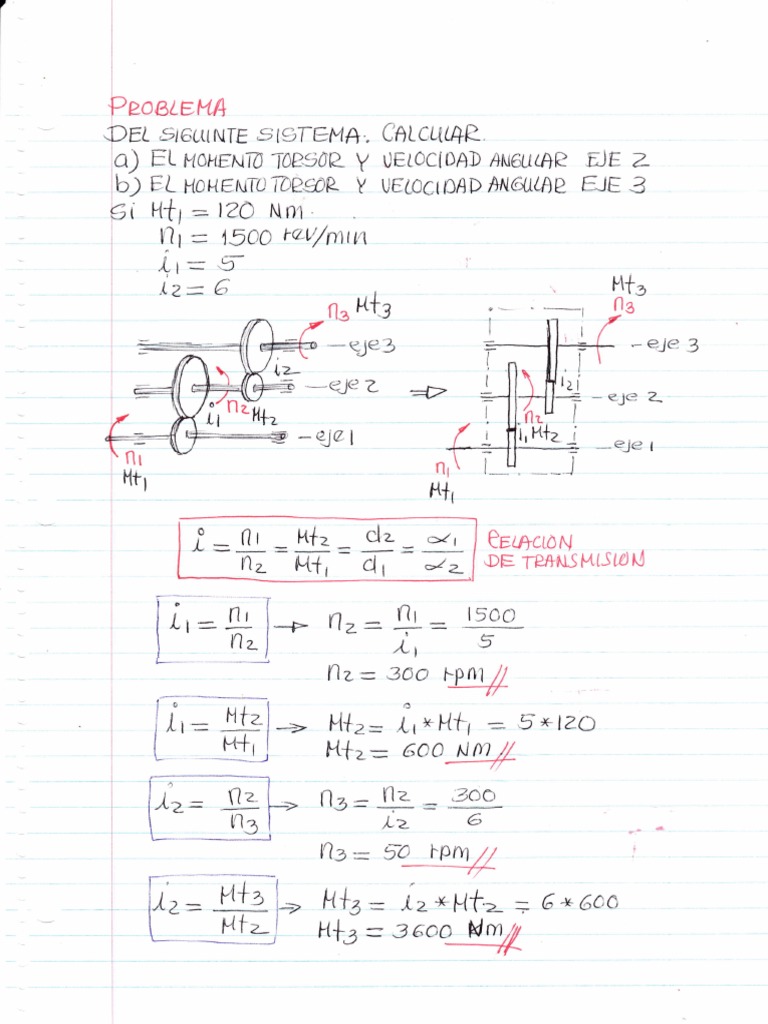 PROBLEMA
DEL SIGUINTE SISTEMA. CALCULAR.
a) EL MOMENTO TORSOR Y VELOCIDAD ANGULAR EJE 2
b) EL MOMENTO TORSOR Y VELOCIDAD ANGULAR EJE 3
Si Mt1 = 120 Nm.
n1 = 1500 rev/min
i1 = 5
i2 = 6
n3 Mt3
eje 3
i2
eje 2
i1 n2 Mt2
eje 1
n1
Mt1
Mt3
n3
eje 3
i2
eje 2
n2
i1 Mt2
eje 1
n1
Mt1
i = n1/n2 = Mt2/Mt1 = d2/d1 = α1/α2 RELACION DE TRANSMISION
i1 = n1/n2 → n2 = n1/i1 = 1500/5
n2 = 300 rpm //
i1 = Mt2/Mt1 → Mt2 = i1 * Mt1 = 5 * 120
Mt2 = 600 Nm //
i2 = n2/n3 → n3 = n2/i2 = 300/6
n3 = 50 rpm //
i2 = Mt3/Mt2 → Mt3 = i2 * Mt2 = 6 * 600
Mt3 = 3600 Nm //